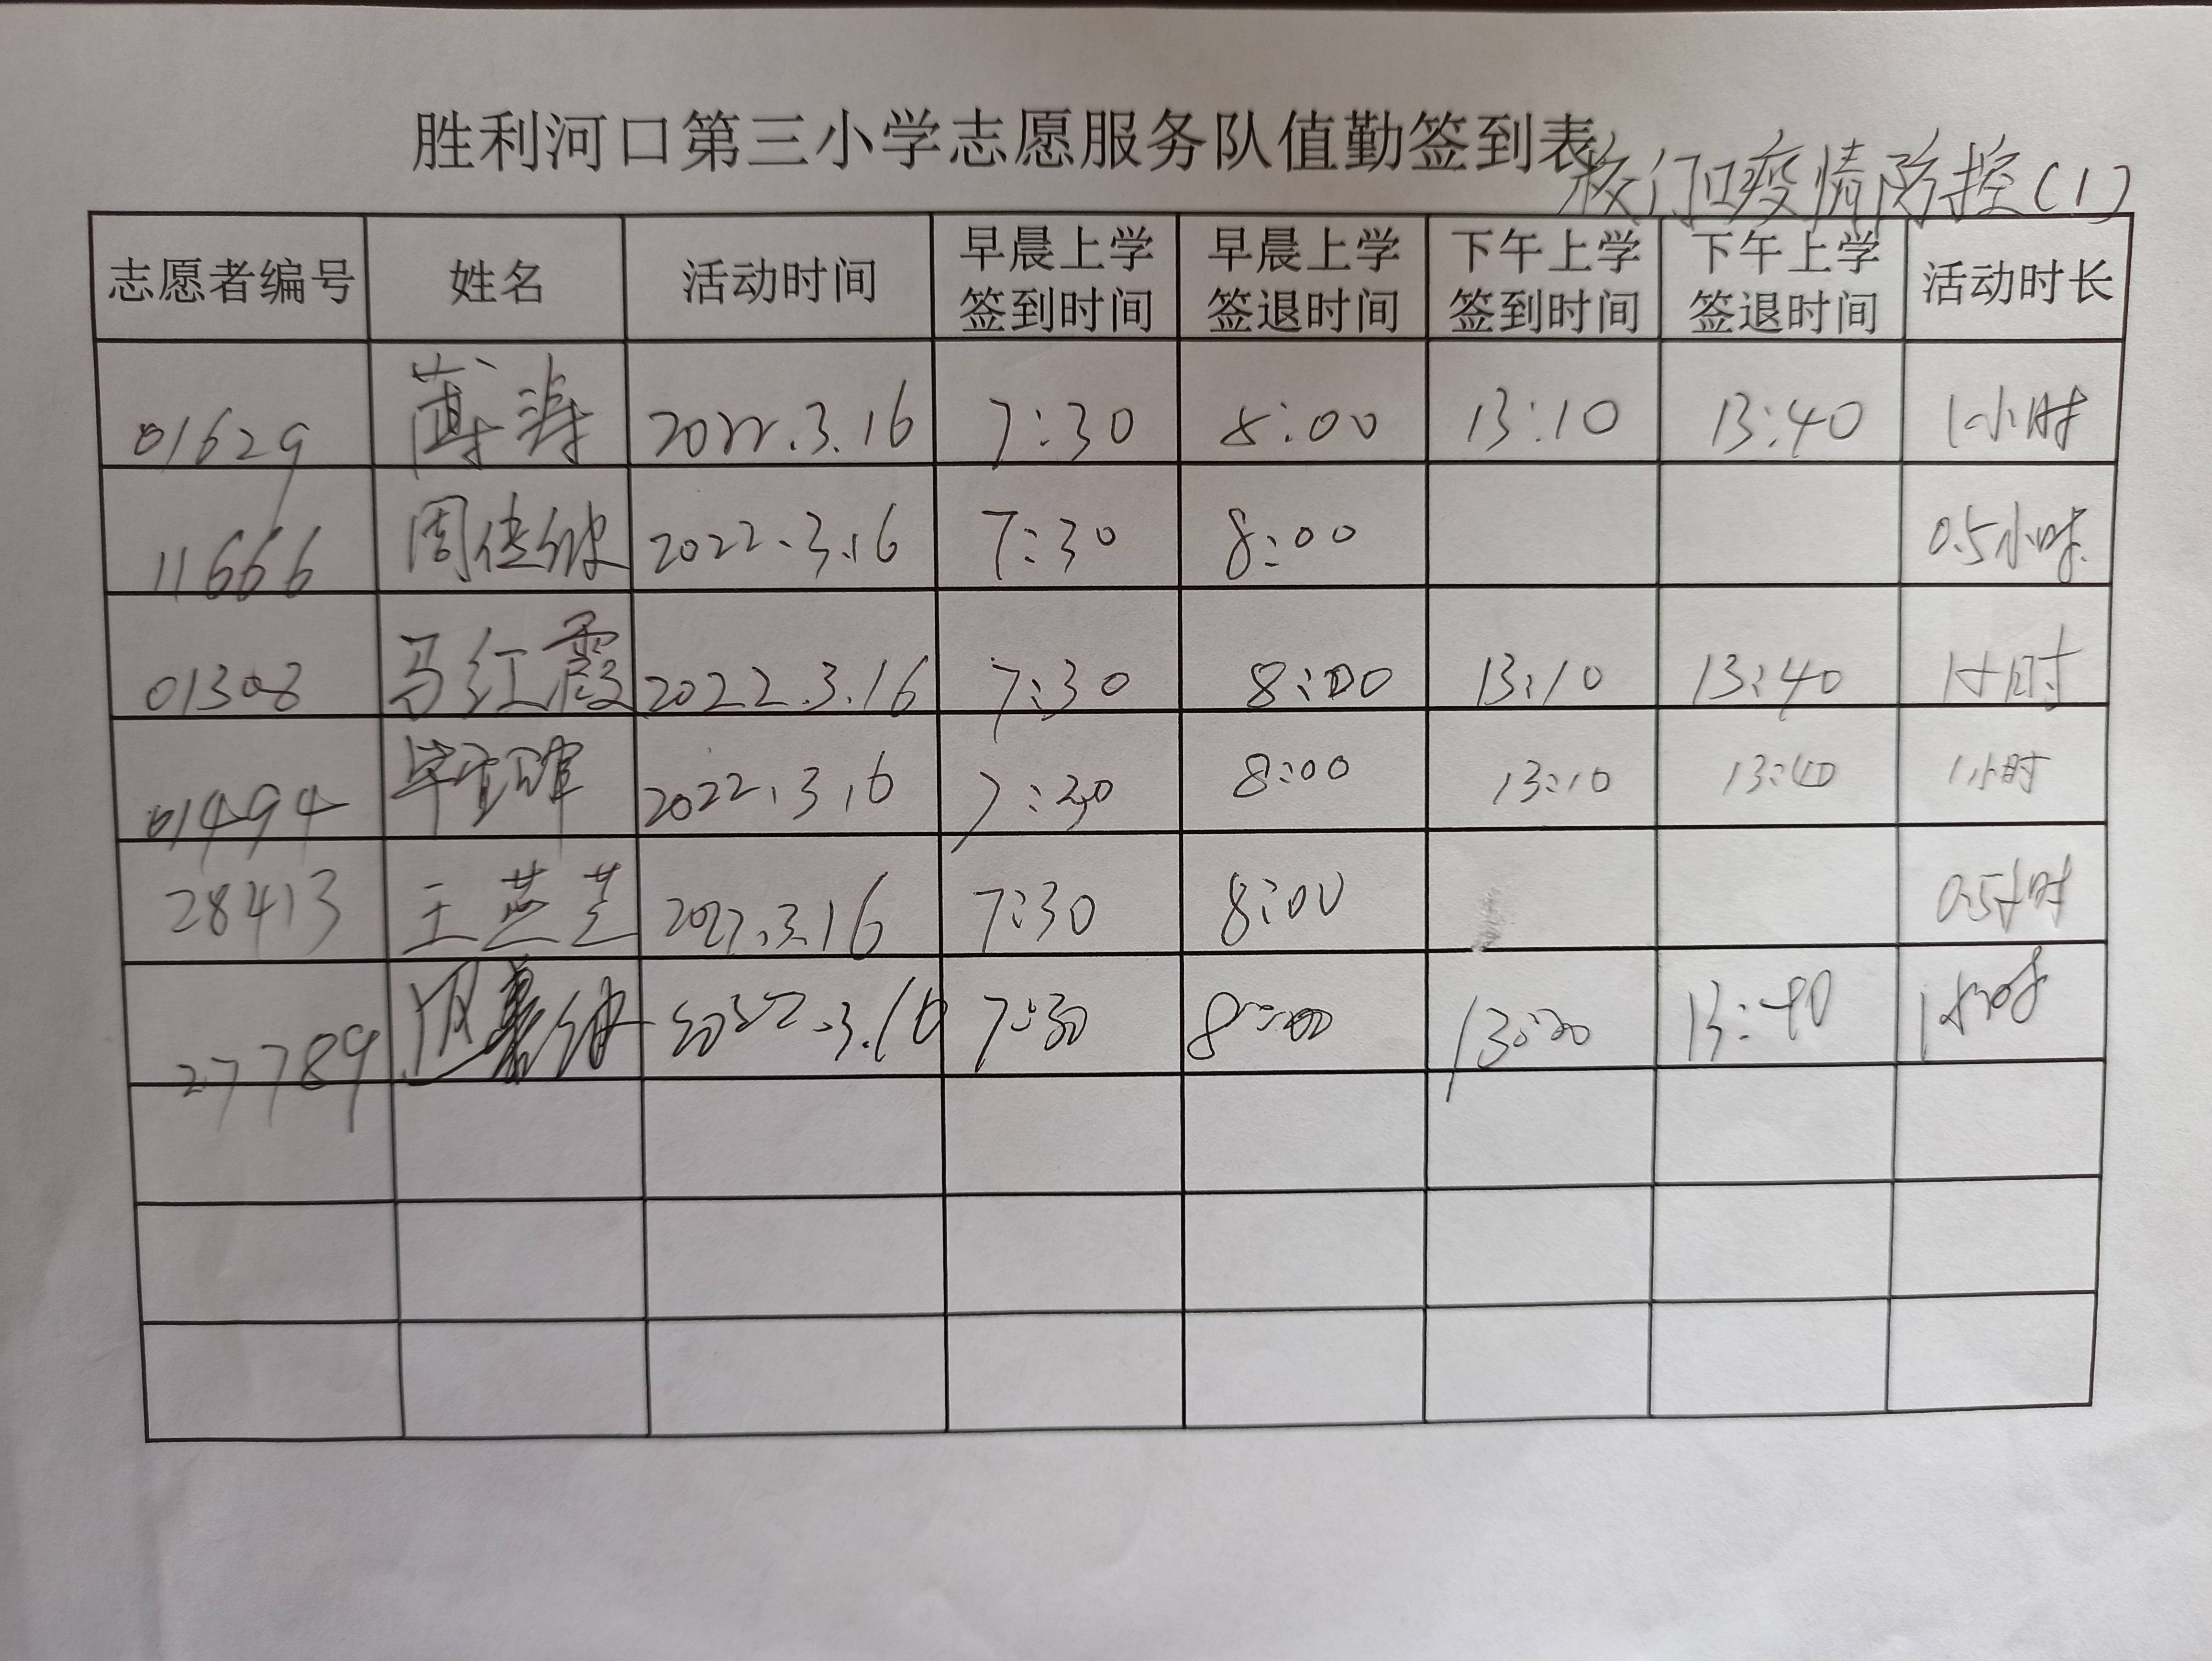 胜利河口第三小学志愿服务队值勤签到表
校门口疫情防控(1)
志愿者编号 姓名 活动时间 早晨上学签到时间 早晨上学签退时间 下午上学签到时间 下午上学签退时间 活动时长
01629 薄涛 2022.3.16 7:30 8:00 13:10 13:40 1小时
11666 周佳 2022.3.16 7:30 8:00 0.5小时
01308 马红霞 2022.3.16 7:30 8:00 13:10 13:40 1小时
01494 2022.3.16 7:30 8:00 13:10 13:40 1小时
28413 王芸芝 2022.3.16 7:30 8:00 0.5小时
27789 7:30 8:00 13:40 1小时